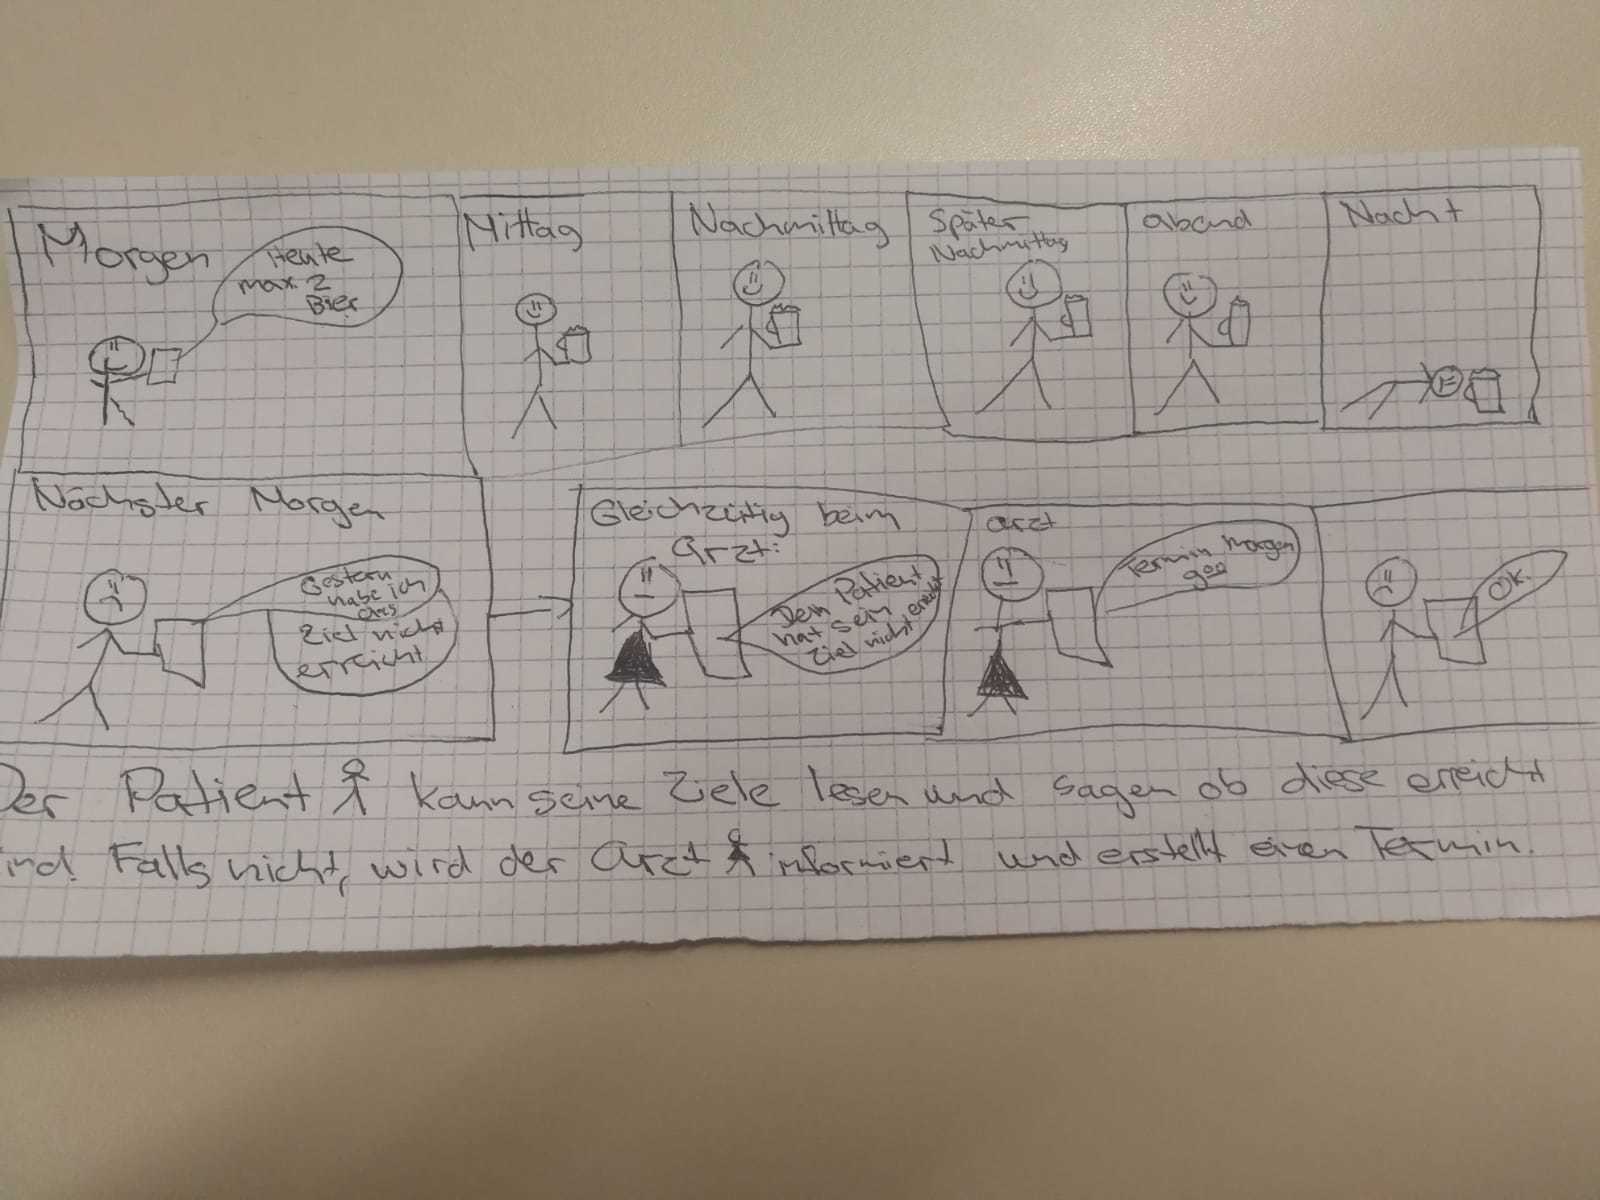 Morgen
Heute
max. 2
Bier
Mittag
Nachmittag
Später
Nachmittag
abend
Nacht
Nächster Morgen
Gestern
habe ich
das
Ziel nicht
erreicht
Gleichzeitig beim
Arzt:
Dein Patient
hat sein
Ziel nicht erreicht
arzt
Termin Morgen
900
OK.
Der Patient kann seine Ziele lesen und sagen ob diese erreicht
ind. Falls nicht, wird der Arzt informiert und erstellt einen Termin.